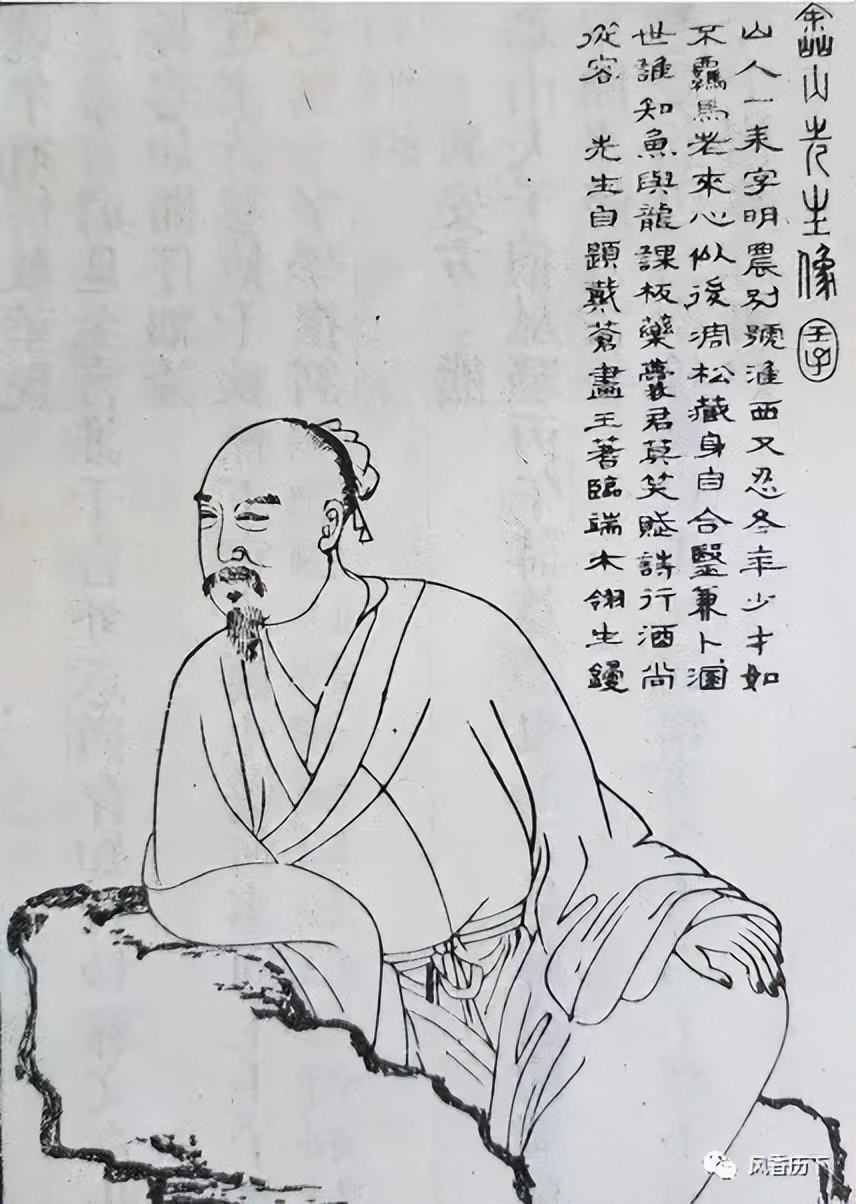 嵞山先生像
壬子
山人一耒字明農別號淮西又忍冬年少才如
不羈馬老來心似後凋松藏身自合醫兼卜溷
世誰知魚與龍課板藥囊君莫笑賦詩行酒尚
從容 先生自題戴蒼畫王著臨端木翎生鏝
风香历下